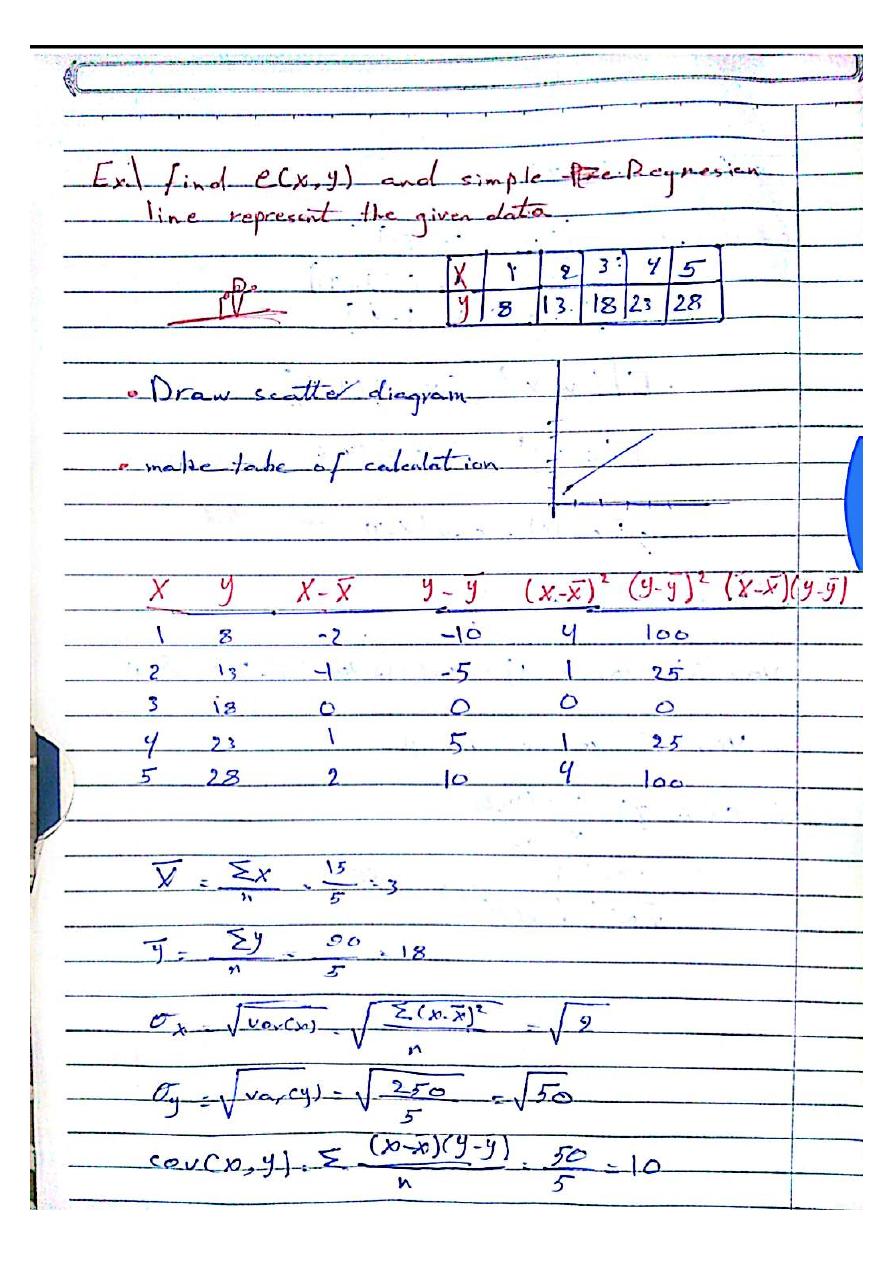 Ex.\ find ρ(x,y) and simple Regnesien
line represent the given data
X 1 2 3 4 5
y 8 13 18 23 28
• Draw scatter diagram
• make tabe of calculation
X y X-x̄ y-ȳ (x-x̄)² (y-ȳ)² (x-x̄)(y-ȳ)
1 8 -2 -10 4 100
2 13 -1 -5 1 25
3 18 0 0 0 0
4 23 1 5 1 25
5 28 2 10 4 100
X̄ = Σx/n = 15/5 = 3
ȳ = Σy/n = 90/5 = 18
σx = √var(x) = √(Σ(x-x̄)²/n) = √2
σy = √var(y) = √(250/5) = √50
cov(x,y) = Σ (x-x̄)(y-ȳ)/n = 50/5 = 10